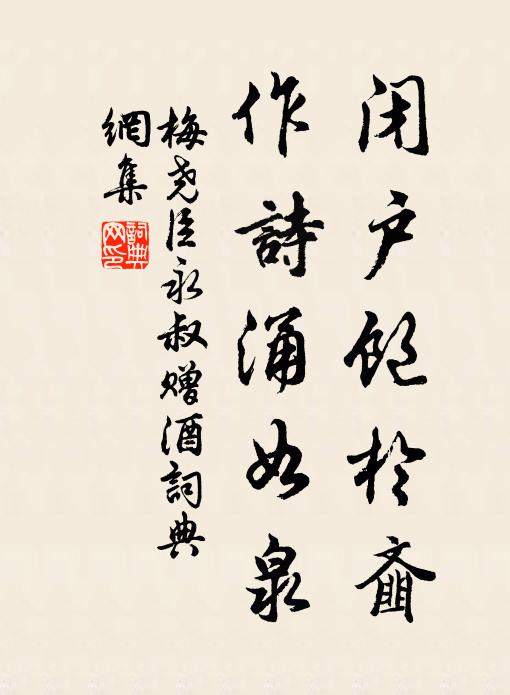 闭户饱於齑
作詩涌如泉
梅尧臣永叔赠酒詞典
網集
詞典网印